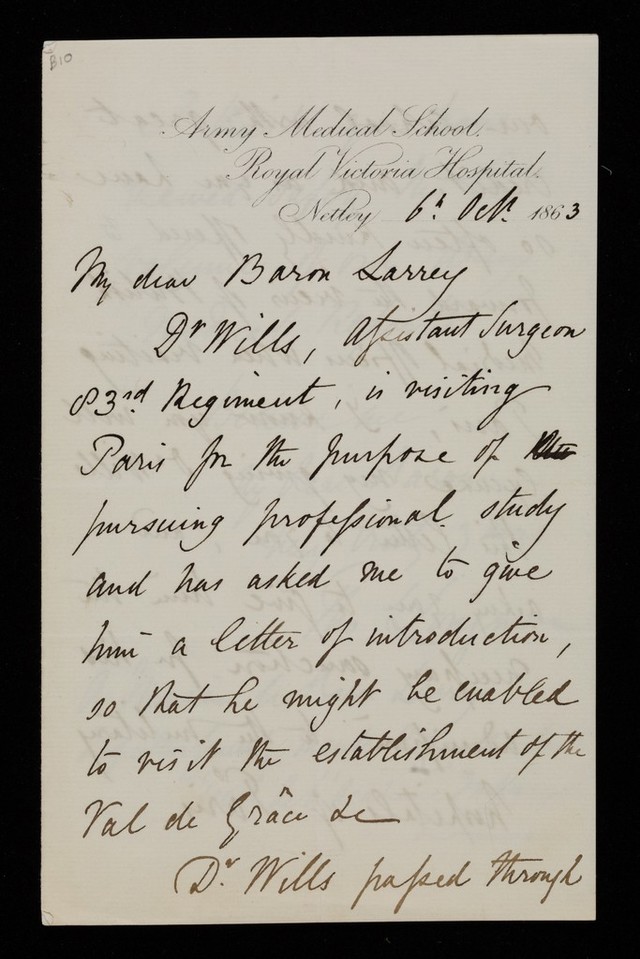 B10
Army Medical School.
Royal Victoria Hospital.
Netley 6th Octr. 1863
My dear Baron Larrey
Dr Wills, Assistant Surgeon
83rd Regiment, is visiting
Paris for the purpose of
pursuing professional study
and has asked me to give
him a letter of introduction,
so that he might be enabled
to visit the establishment of the
Val de Grâce &c
Dr. Wills passed through